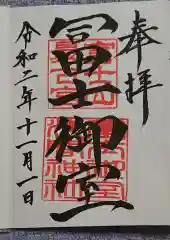 奉拝
冨士御室
令和二年十一月一日